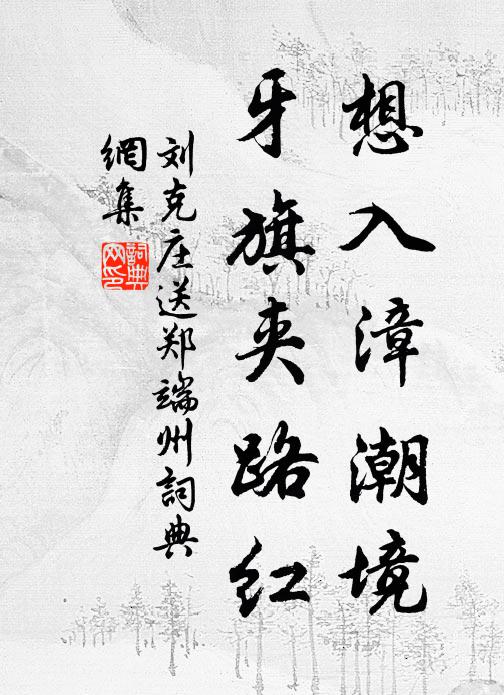 想入漳潮境
牙旗夹路红
刘克庄送郑端州詞典
網集
詞典網印